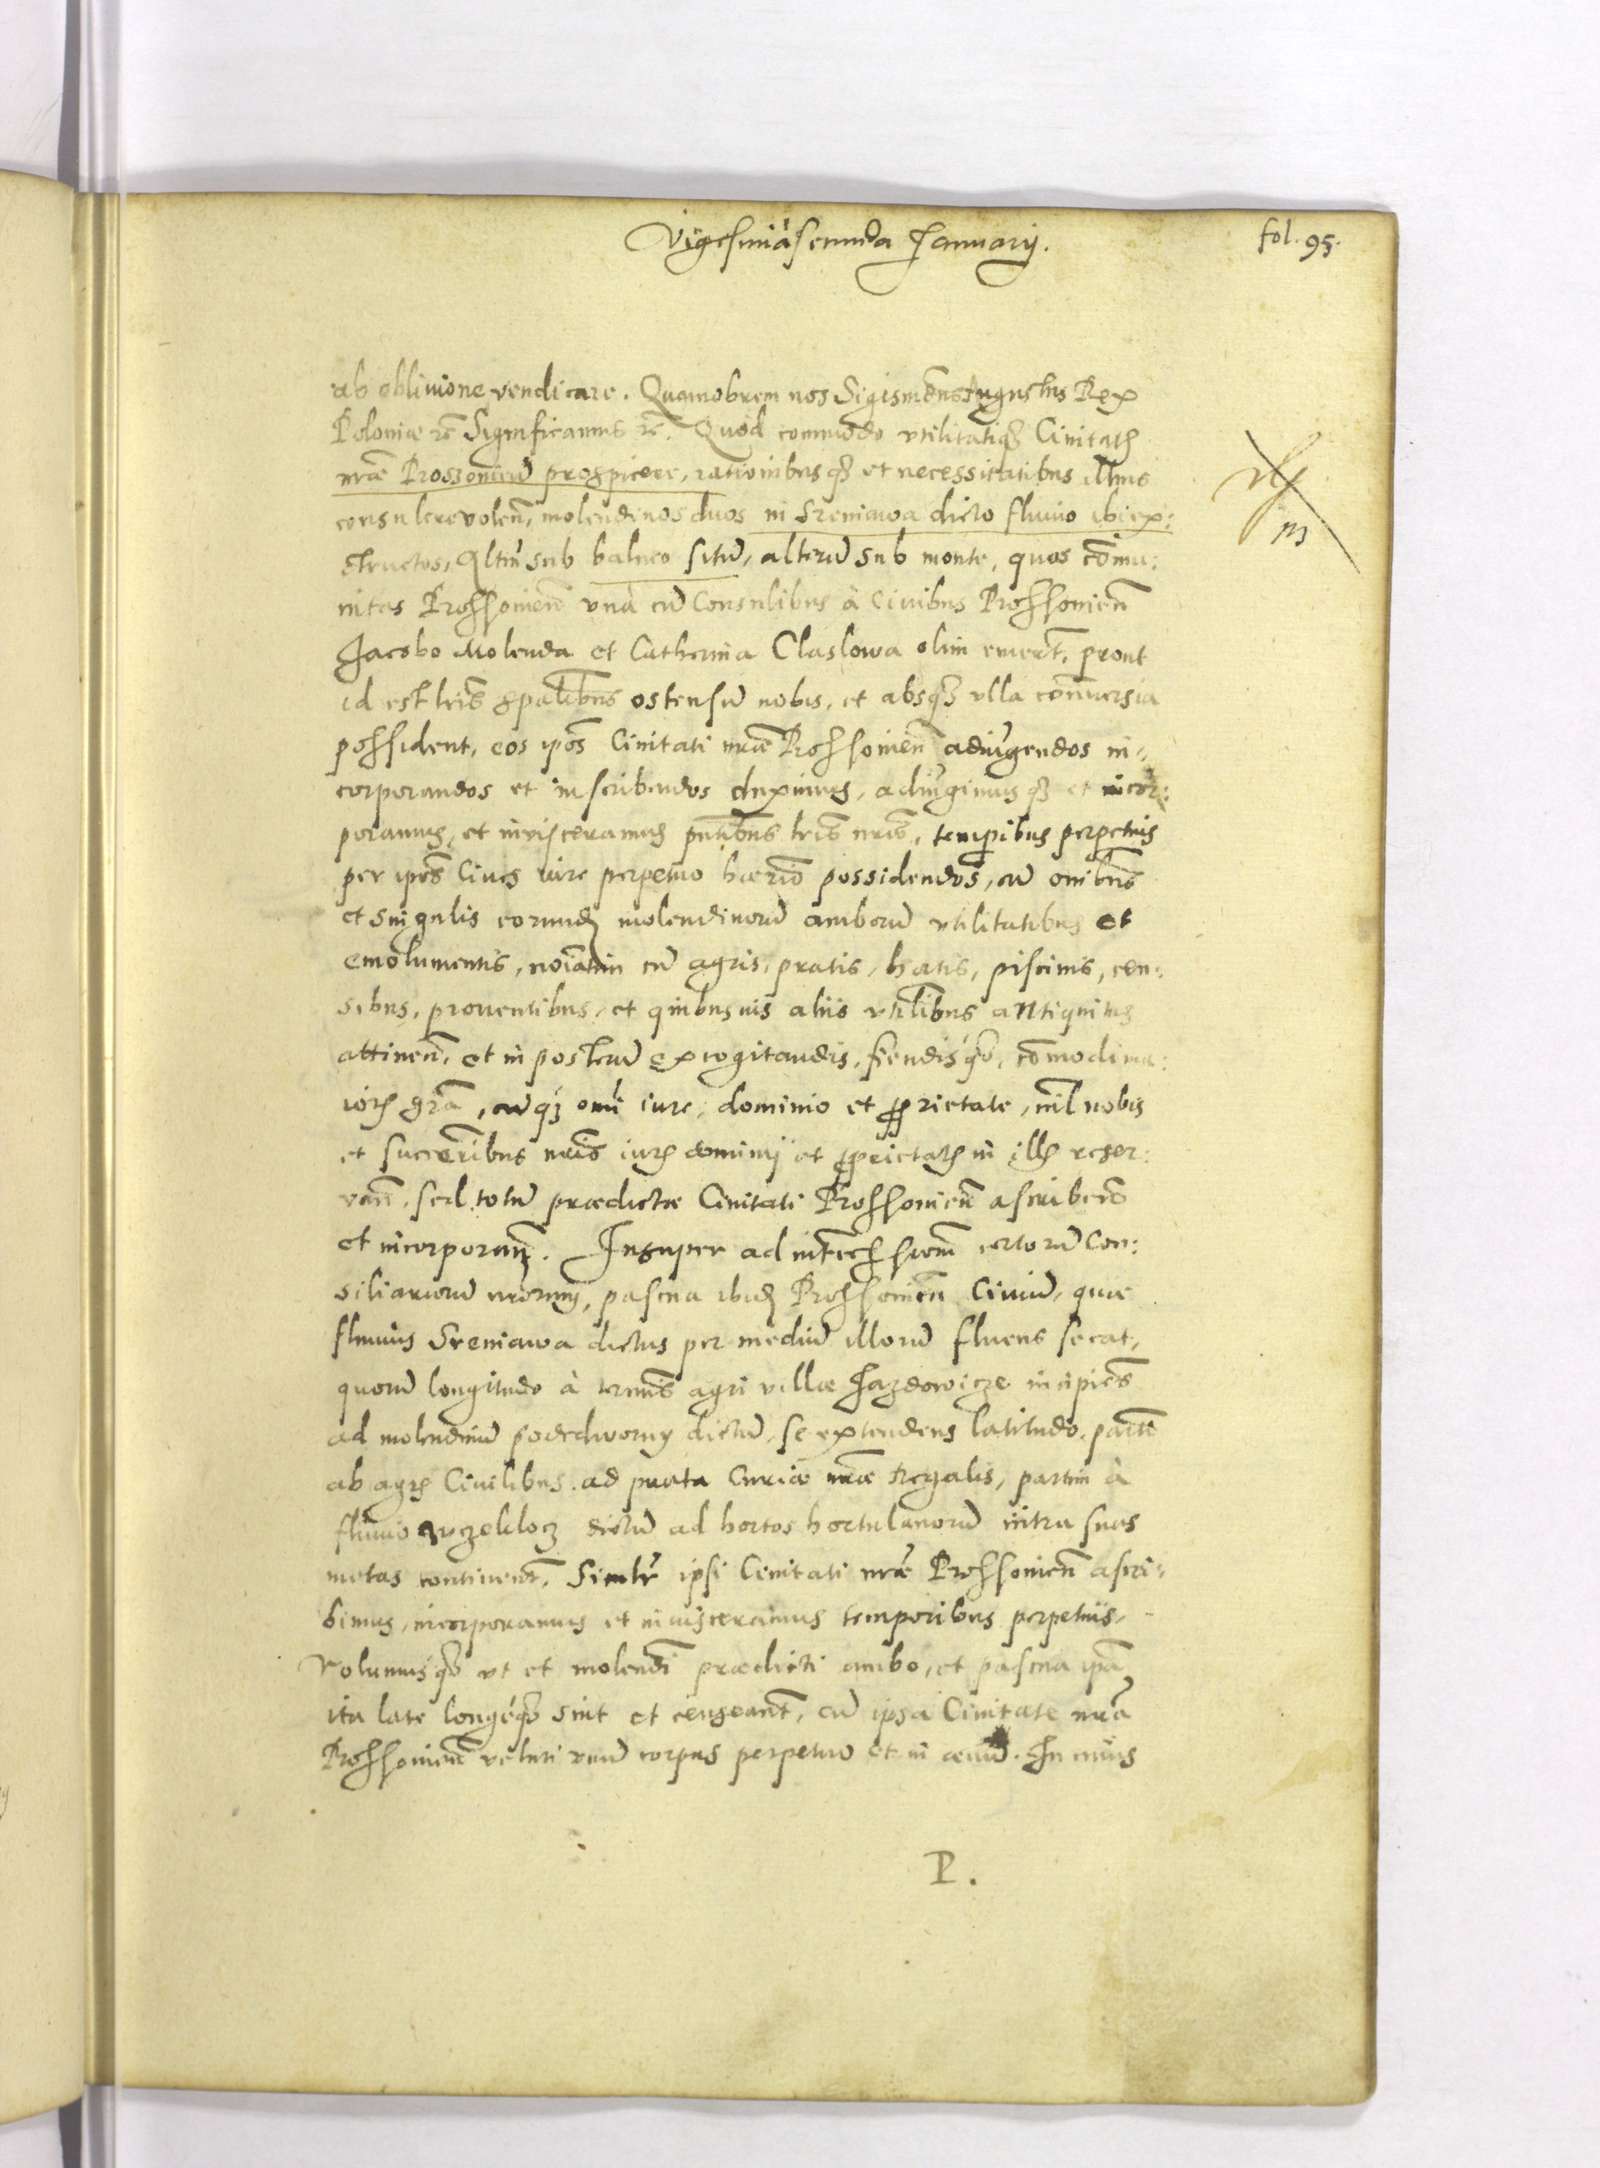 Vigesimasecunda Januarij.
fol. 95.
ab oblivione vendicare. Quamobrem nos Sigismūns Augustus Rex
Poloniæ rē Significamus rē. Quod commodo utilitatiq3 Civitatis
nrāe Proszovien prospicere, rationibusq3 et necessitatibus illius
consulere volen, molendinos duos in Sreniawa dicto fluvio ibi ex:
structos, Altrū sub balneo situ, alteru sub monte, quos cōmu:
nitas Prossovien una cu Consulibus à Civibus Prossovien
Jacobo Molenda et Catherina Claslowa olim emert, prout
id est lris spālibus ostensu nobis, et absq3 ulla contuersia
possident, eos ipōs Civitati nrāe Prossovien adiūgendos in:
corporandos et inscribendos duximus, adiūgimusq3 et incor:
poramus, et invisceramus pntibus lris nris, tempibus perpetuis
per ipōs Cives iure perpetuo hærio possidendos, cu omibus
et singulis eorund molendinoru amboru utilitatibus et
emolumentis, noiatim cu agris, pratis, hortis, piscinis, cen:
sibus, proventibus, et quibusvis aliis utilibus antiquitus
attinen, et in posteru excogitandis, fiendisq3, cōmodi ma:
ioris gra, cuq3 omi iure, dominio et prietate, nil nobis
et succeribus nris iuris dominij et prietatis in illis reser:
van, sed totu prædictæ Civitati Prossovien ascriben
et incorporan. Insuper ad intercessioem certoru Con:
siliarioru nrorum, pascua ibid Prossovien Civiu, quæ
fluvius Sreniawa dictus per mediu illoru fluens secat,
quoru longitudo à termis agri villæ Jazdowicze incipiens
ad molendinu podedworny dictu, se extendens latitudo, partī
ab agris Civilibus ad prata Curiæ nræ Regalis, partim à
fluvio dictu ad hortos hortulanoru intra suas
metas continent, Similr ipsi Civitati nræ Prossovien ascri:
bimus, incorporamus et invisceramus temporibus perpetuis,
Volumusq3 ut et molendi prædicti ambo, et pascua ipa
ita late longeq3 sint et censeant, cu ipsa Civitate nra
Prossovien veluti unu corpus perpetuo et in ævu. In cuius
P.